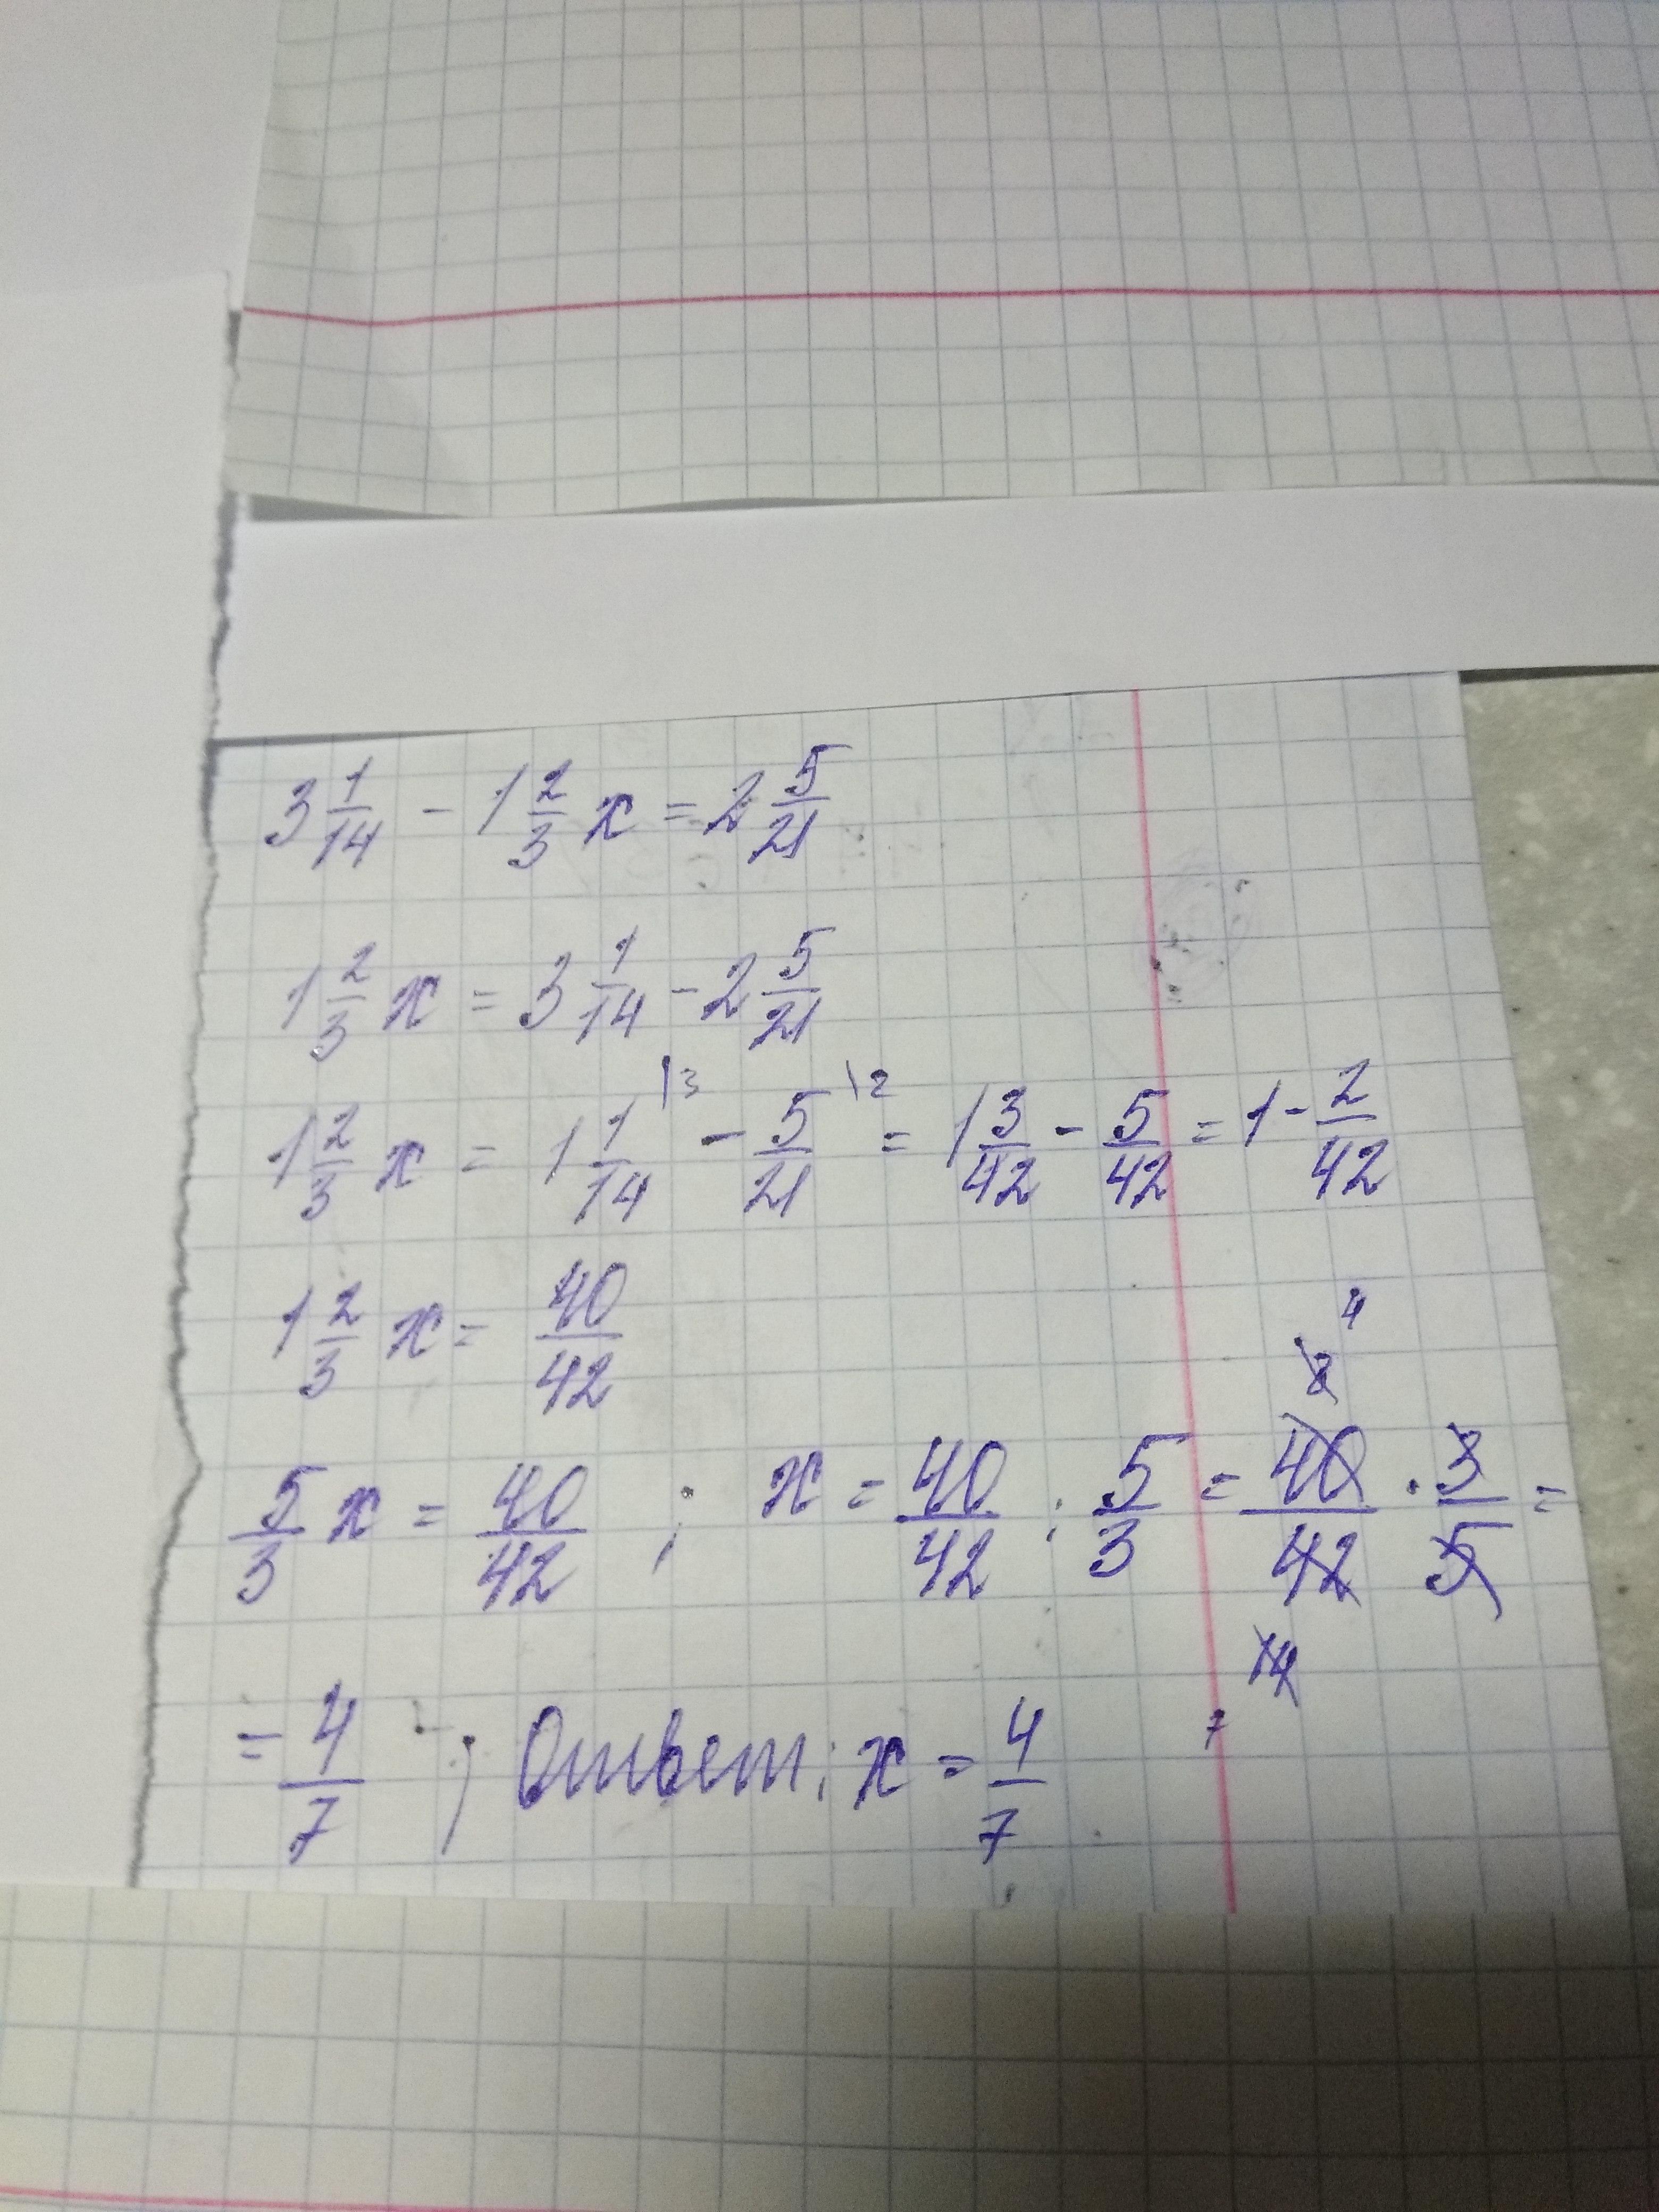 3 1/14 - 1 2/3 x = 2 5/21
1 2/3 x = 3 1/14 - 2 5/21
1 2/3 x = 1 1/14 \3 - 5/21 \2 = 1 3/42 - 5/42 = 1 - 2/42
1 2/3 x = 40/42
4
8
5/3 x = 40/42 ; x = 40/42 : 5/3 = 40/42 · 3/5 =
14
7
= 4/7 ; Ответ: x = 4/7